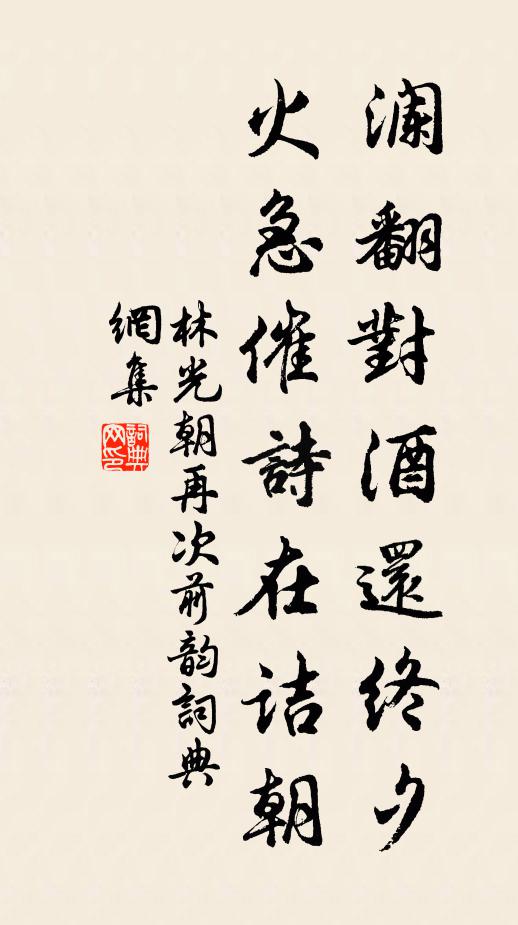 瀾翻對酒還終夕
火急催詩在詰朝
林光朝再次前韵詞典
網集
詞典网印